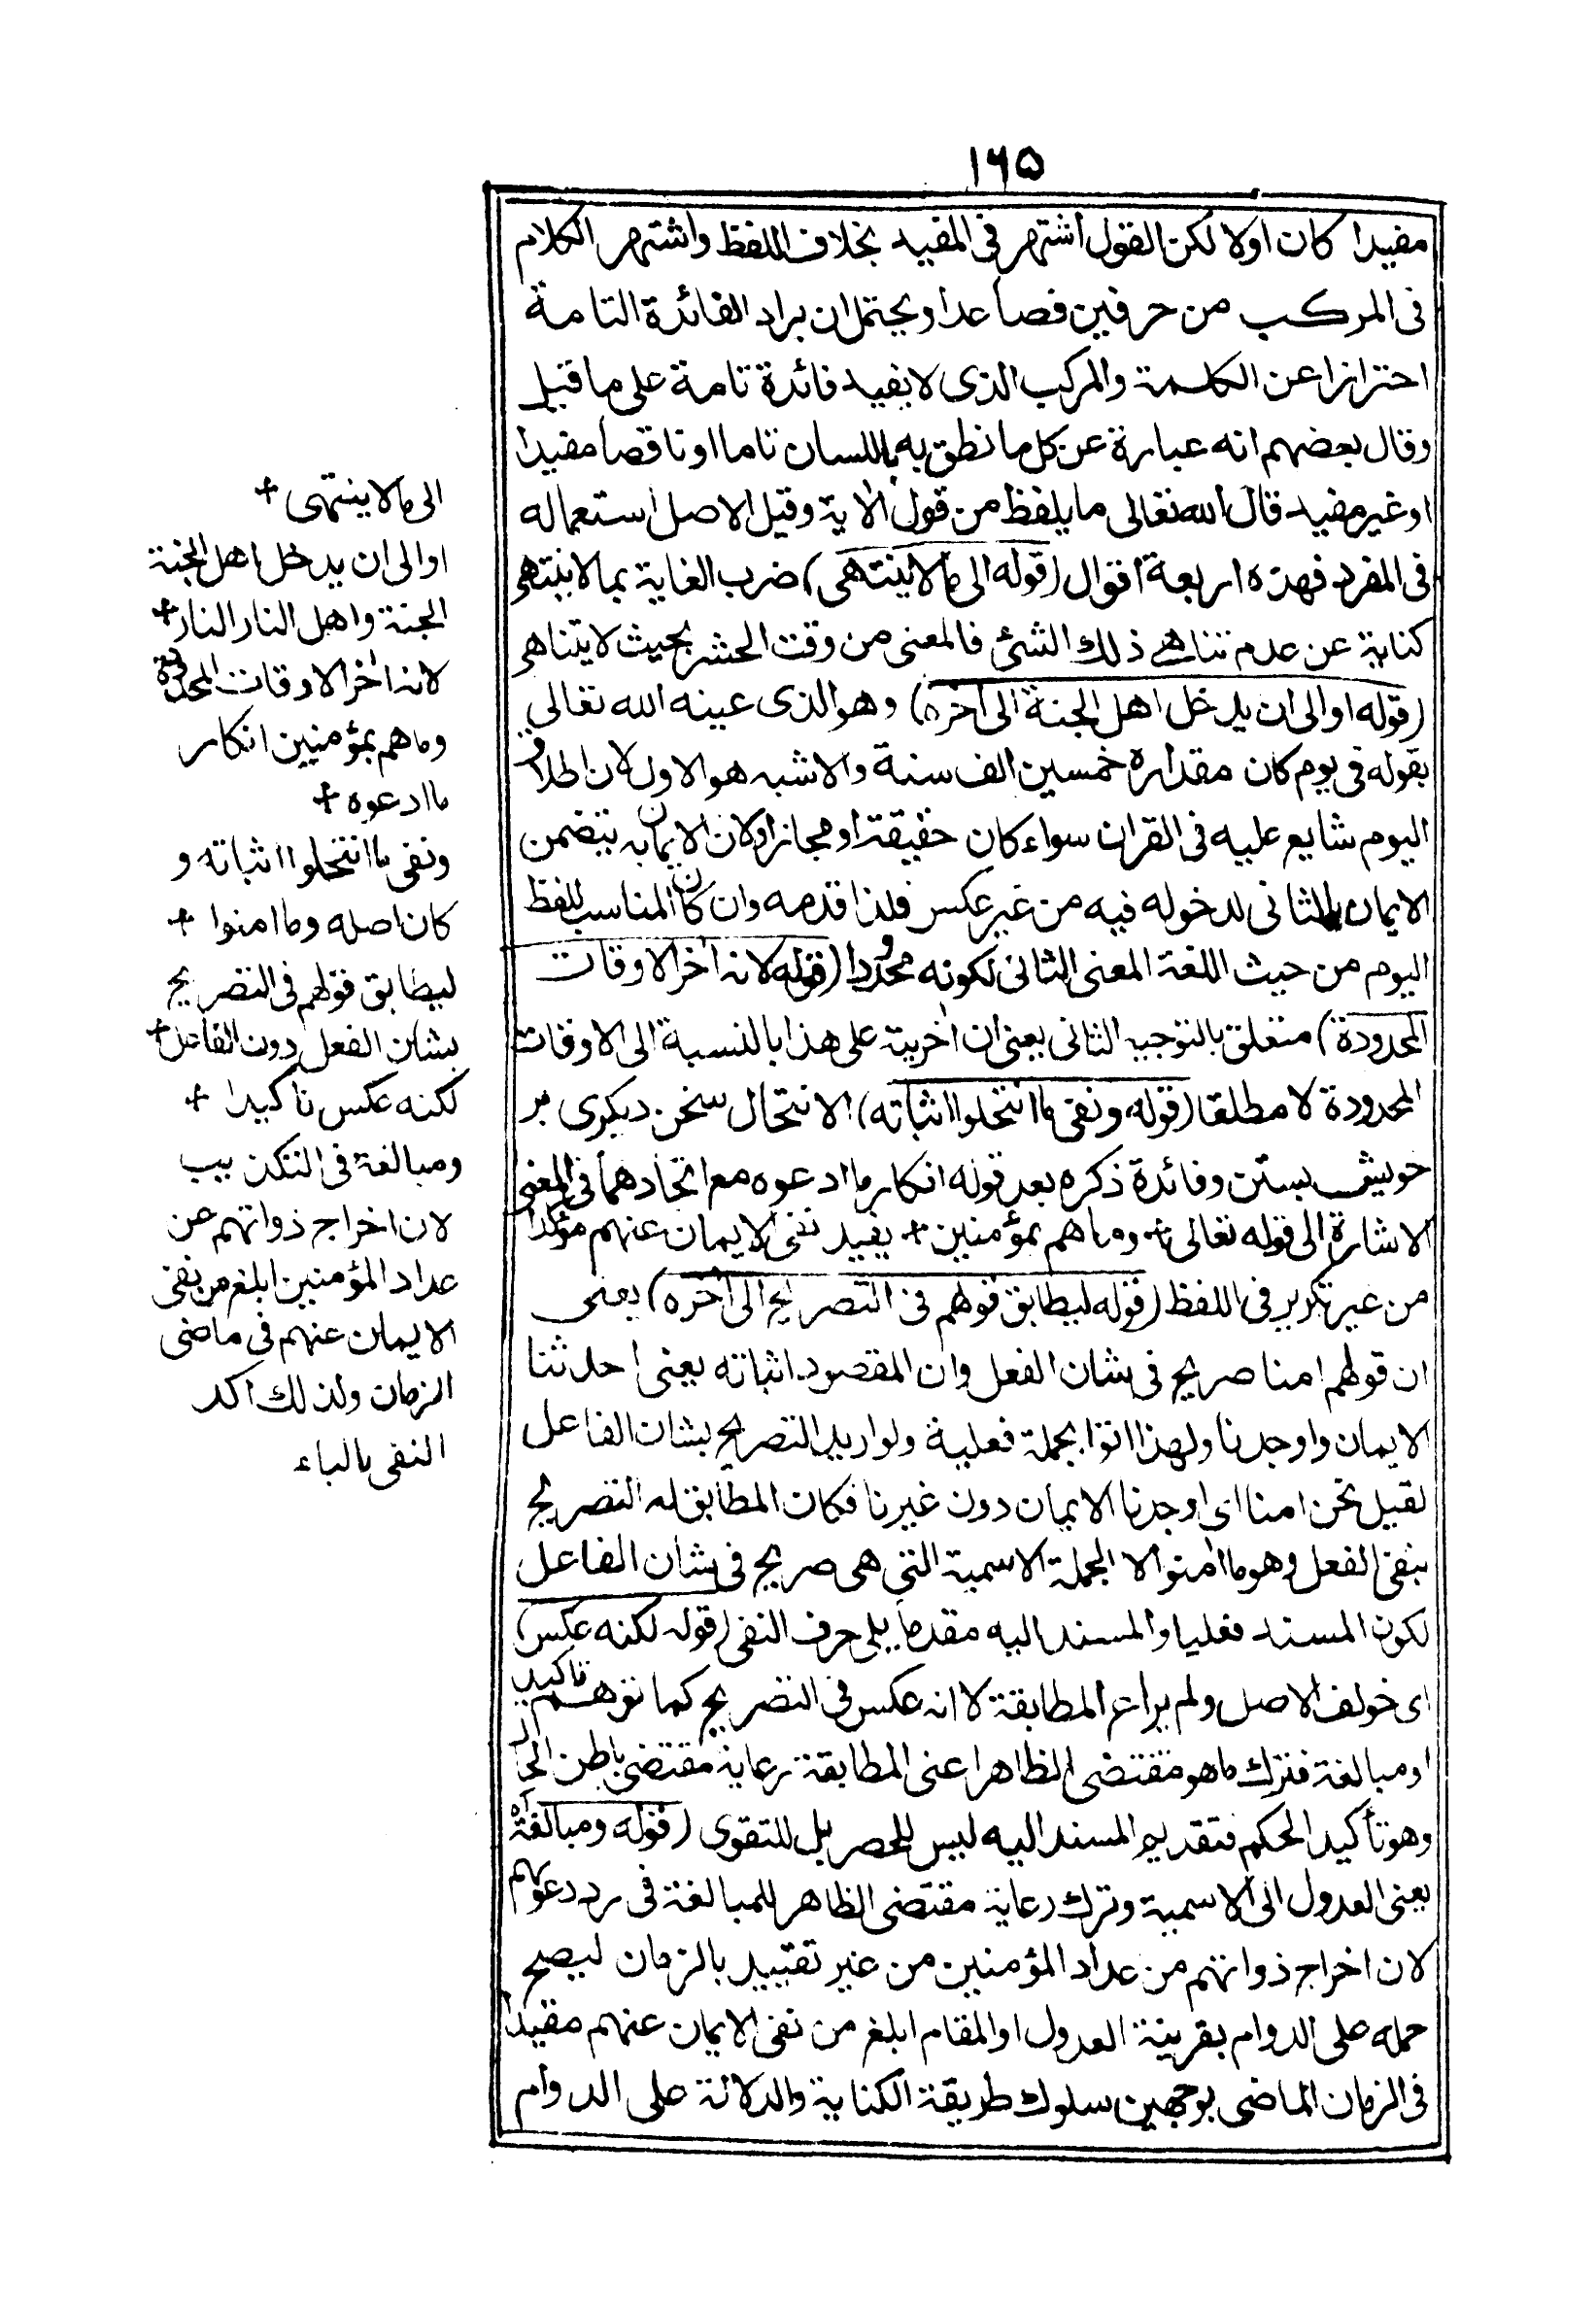 ١٦٥
مفيدا كان اولا لكن القول اشتهر فى المفيد بخلاف اللفظ واشتهر الكلام
فى المركب من حرفين فصاعدا ويحتمل ان يراد الفائدة التامة
احترازا عن الكلمة والمركب الذى لا يفيد فائدة تامة على ما قيل
وقال بعضهم انه عبارة عن كل ما نطق به باللسان تاما او ناقصا مفيدا
او غير مفيد قال الله تعالى ما يلفظ من قول الاية وقيل الاصل استعماله
فى المفرد فهذه اربعة اقوال (قوله الى ما لا ينتهى) ضرب الغاية بما لا ينتهى
كناية عن عدم تناهى ذلك الشئ فالمعنى من وقت الحشر بحيث لا يتناهى
(قوله او الى ان يدخل اهل الجنة الى اخره) وهو الذى عينه الله تعالى
بقوله فى يوم كان مقداره خمسين الف سنة والاشبه هو الاول لان اطلاق
اليوم شايع عليه فى القران سواء كان حقيقة او مجازا ولان الايمان به يتضمن
الايمان بالثانى لدخوله فيه من غير عكس فلذا قدمه وان كان المناسب للفظ
اليوم من حيث اللغة المعنى الثانى لكونه محدودا (قوله لانه اخر الاوقات
المحدودة) متعلق بالتوجيه الثانى يعنى ان اخريته على هذا بالنسبة الى الاوقات
المحدودة لا مطلقا (قوله ونفى ما انتحلوا اثباته) الانتحال سخن ديكرى بر
خويش بستن وفائدة ذكره بعد قوله انكار ما ادعوه مع اتحادهما فى المعنى
الاشارة الى قوله تعالى + وما هم بمؤمنين + يفيد نفى الايمان عنهم مؤكدا
من غير تكرير فى اللفظ (قوله ليطابق قولهم فى التصريح الى اخره) يعنى
ان قولهم امنا صريح فى شان الفعل وان المقصود اثباته يعنى احدثنا
الايمان واوجدنا ولهذا اتوا بجملة فعلية ولو اريد التصريح بشان الفاعل
لقيل نحن امنا اى اوجدنا الايمان دون غيرنا فكان المطابق له التصريح
بنفى الفعل وهو ما امنوا لا الجملة الاسمية التى هى صريح فى شان الفاعل
لكون المسند فعليا والمسند اليه مقدما يلى حرف النفى (قوله لكنه عكس)
اى خولف الاصل ولم يراع المطابقة لا انه عكس فى التصريح كما توهم تاكيدا
او مبالغة فترك ما هو مقتضى الظاهر اعنى المطابقة رعاية مقتضى باطن الحال
وهو تأكيد الحكم فتقديم المسند اليه ليس للحصر بل للتقوى (قوله ومبالغة اه
يعنى العدول الى الاسمية وترك رعاية مقتضى الظاهر للمبالغة فى رد دعوىهم
لان اخراج ذواتهم من عداد المؤمنين من غير تقييد بالزمان ليصح
حمله على الدوام بقرينة العدول او المقام ابلغ من نفى الايمان عنهم مقيدا
فى الزمان الماضى بوجهين سلوك طريقة الكناية والدلالة على الدوام
الى ما لا ينتهى +
او الى ان يدخل اهل الجنة
الجنة واهل النار النار +
لانه اخر الاوقات المحدودة
وما هم بمؤمنين انكار
ما ادعوه +
ونفى ما انتحلوا اثباته و
كان اصله وما امنوا +
ليطابق قولهم فى التصريح
بشان الفعل دون الفاعل +
لكنه عكس تاكيدا +
ومبالغة فى التكذيب
لان اخراج ذواتهم عن
عداد المؤمنين ابلغ من نفى
الايمان عنهم فى ماضى
الزمان ولذلك اكد
النفى بالباء